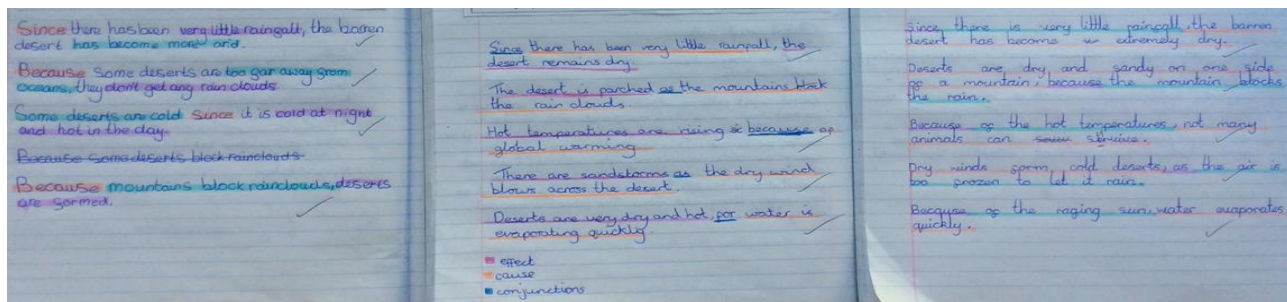 Since there has been very little rainfall, the barren
desert has become more arid.
Because some deserts are too far away from
oceans, they dont get any rain clouds.
Some deserts are cold since it is cold at night
and hot in the day.
Because some deserts block rainclouds
Because mountains block rainclouds, deserts
are formed.
Since there has been very little rainfall, the
desert remains dry.
The desert is parched as the mountains block
the rain clouds.
Hot temperatures are rising because of
global warming
There are sandstorms as the dry wind
blows across the desert.
Deserts are very dry and hot, for water is
evaporating quickly
effect
cause
conjunctions
Since there is very little rainfall, the barren
desert has become extremely dry.
Deserts are dry and sandy on one side
of a mountain, because the mountain blocks
the rain.
Because of the hot temperatures, not many
animals can survive.
Dry winds form cold deserts, as the air is
too frozen to let it rain.
Because of the raging sun, water evaporates
quickly.